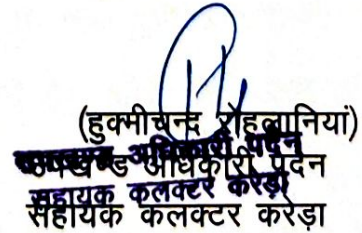 (हुक्मीचन्द रोहलानियां)
उपखण्ड अधिकारी पदेन
सहायक कलक्टर करेड़ा
उपखण्ड अधिकारी पदेन
सहायक कलक्टर करेड़ा